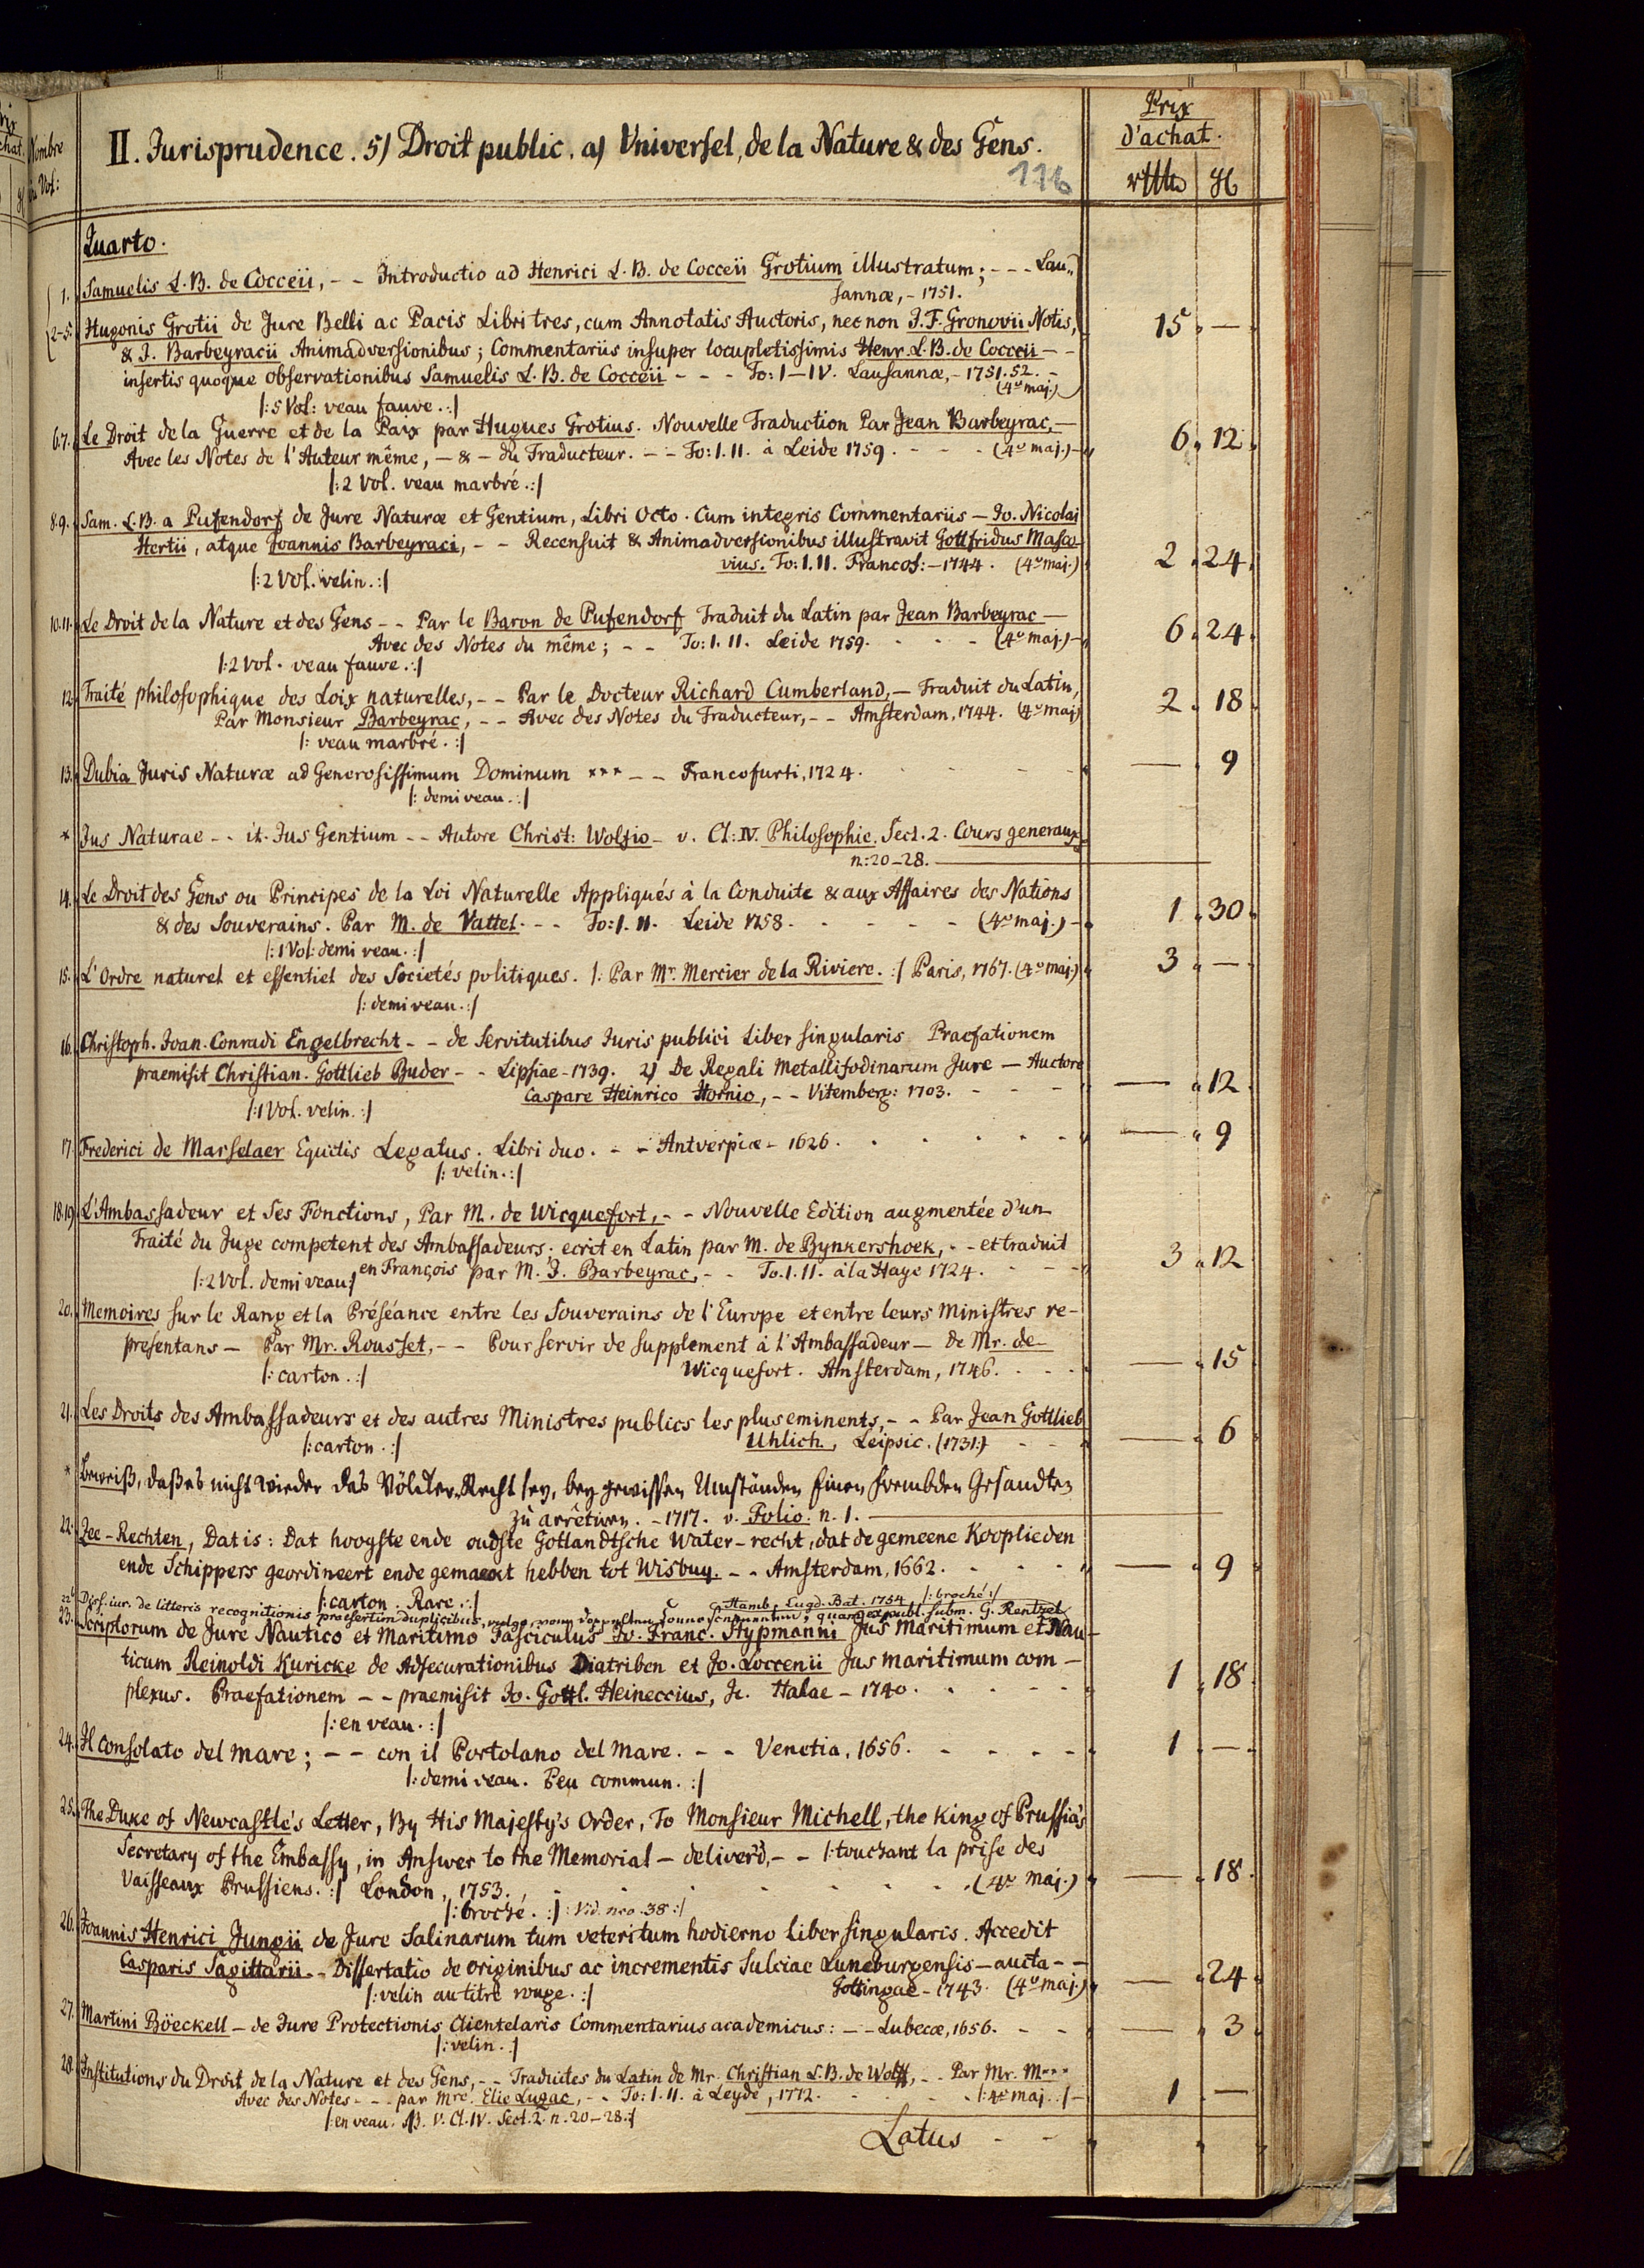 Prix
d'achat.
Nombre
de Vol:
II. Jurisprudence. 5) Droit public. a) Universel, de la Nature & des Gens.
116
Quarto.
1. Samuelis L. B. de Cocceii, - - Introductio ad Henrici L. B. de Cocceii Grotium illustratum; - - - Lau-
sannæ, - 1751.
2-5. Hugonis Grotii de Jure Belli ac Pacis Libri tres, cum Annotatis Auctoris, nec non J. F. Gronovii Notis, 15. —
& J. Barbeyracii Animadversionibus; Commentariis insuper locupletissimis Henr. L. B. de Cocceii - -
insertis quoque observationibus Samuelis L. B. de Cocceii - - - To: I—IV. Lausannæ, - 1751. 52. -
(4º maj.)
|: 5 Vol: veau fauve. :|
6.7. Le Droit de la Guerre et de la Paix par Hugues Grotius. Nouvelle Traduction Par Jean Barbeyrac, — 6. 12.
Avec les Notes de l'Auteur même, — & — du Traducteur. - - To: I. II. à Leide 1759. - - - (4º maj.) -
|: 2 Vol. veau marbré. :|
8.9. Sam. L. B. a Pufendorf de Jure Naturæ et Gentium, Libri Octo. Cum integris Commentariis — Jo. Nicolai
Hertii, atque Joannis Barbeyraci, - - Recensuit & Animadversionibus illustravit Gottfridus Masco-
vius. To: I. II. Francof: - 1744. (4º maj.) 2. 24.
|: 2 Vol. velin. :|
10.11. Le Droit de la Nature et des Gens - - Par le Baron de Pufendorf Traduit du Latin par Jean Barbeyrac —
Avec des Notes du même; - - To: I. II. Leide 1759. - - - (4º maj.) - 6. 24.
|: 2 Vol. veau fauve. :|
12. Traité philosophique des Loix naturelles, - - Par le Docteur Richard Cumberland, — Traduit du Latin,
Par Monsieur Barbeyrac, - - Avec des Notes du Traducteur, - - Amsterdam, 1744. (4º maj) 2. 18
|: veau marbré. :|
13. Dubia Juris Naturæ ad Generosissimum Dominum *** - - Francofurti, 1724. — . 9
|: demi veau. :|
* Jus Naturae - - it. Jus Gentium - - Autore Christ: Wolfio - v. Cl: IV. Philosophie. Sect. 2. Cours generaux
n: 20-28.
14. Le Droit des Gens ou Principes de la Loi Naturelle Appliqués à la Conduite & aux Affaires des Nations
& des Souverains. Par M. de Vattel. - - To: I. II. Leide 1758. - - - (4º maj.) - 1. 30.
|: 1 Vol: demi veau. :|
15. L'Ordre naturel et essentiel des Societés politiques. |: Par Mr. Mercier de la Riviere. :| Paris, 1767. (4º maj.) 3. —
|: demi veau. :|
16. Christoph. Joan. Conradi Engelbrecht - - de Servitutibus Juris publici Liber singularis Praefationem
praemisit Christian. Gottlieb Buder - - Lipsiae - 1739. 2) De Regali Metallifodinarum Jure — Auctore
Caspare Heinrico Hornio, - - Vitemberg: 1703. — . 12
|: 1 Vol. velin. :|
17. Frederici de Marselaer Equitis Legatus. Libri duo. - - Antverpiæ - 1626. — . 9
|: velin. :|
18.19. L'Ambassadeur et Ses Fonctions, Par M. de Wicquefort, - - Nouvelle Edition augmentée d'un
Traité du Juge competent des Ambassadeurs; ecrit en Latin par M. de Bynkershoek, - - et traduit
|: 2 Vol. demi veau :| en François par M. J. Barbeyrac, - - To. I. II. à la Haye 1724. 3. 12
20. Memoires sur le Rang et la Préséance entre les Souverains de l'Europe et entre leurs Ministres re-
presentans — Par Mr. Rousset, - - Pour servir de supplement à l'Ambassadeur — de Mr. de
|: carton. :| Wicquefort. Amsterdam, 1746. — . 15
21. Les Droits des Ambassadeurs et des autres Ministres publics les plus eminents, - - Par Jean Gottlieb
|: carton. :| Uhlich, Leipsic. (1731:) — . 6
* Beweiß, daß es nicht wieder das Völcker-Recht sey, bey gewissen Umständen Einen frembden Gesandten
zu arrêtiren. - 1717. v. Folio. n. 1.
22. Zee-Rechten, Dat is: Dat hoogste ende oudste Gotlandtsche Water-recht, dat de gemeene Kooplieden
ende Schippers geordineert ende gemaeckt hebben tot Wisbuy. - - Amsterdam, 1662. — . 9
|: carton. Rare. :|
Diss. iur. de litteris recognitionis praesertim duplicibus, vulgo, quam ex publ. subm. G. Rentzel
Hamb. Lugd. Bat. 1754 |: broché :|
23. Scriptorum de Jure Nautico et Maritimo Fasciculus Jo. Franc. Stypmanni Jus Maritimum et Nau-
ticum Reinoldi Kuricke de Adsecurationibus Diatriben et Jo. Loccenii Jus maritimum com-
plexus. Praefationem - - praemisit Jo. Gottl. Heineccius, Jc. Halae - 1740. 1. 18
|: en veau. :|
24. Il Consolato del mare; - - con il Portolano del Mare. - - Venetia, 1656. 1. —
|: demi veau. Peu commun. :|
25. The Duke of Newcastle's Letter, By His Majesty's Order, To Monsieur Michell, the King of Prussia's
Secretary of the Embassy, in Answer to the Memorial — deliver'd, - - |: touchant la prise des
Vaisseaux Prussiens. :| London, 1753. (4º maj.) — . 18
|: broché. :| |: Vid. nro. 38 :|
26. Joannis Henrici Jungii de Jure Salinarum tum veteri tum hodierno Liber singularis. Accedit
Casparis Sagittarii - - Dissertatio de originibus ac incrementis Sulciae Luneburgensis — aucta - -
|: velin au titre rouge. :| Gottingae - 1743. (4º maj.) — . 24
27. Martini Böeckell — de Jure Protectionis Clientelaris Commentarius academicus: - - Lubecæ, 1656. — . 3
|: velin. :|
28. Institutions du Droit de la Nature et des Gens, - - Traduites du Latin de Mr. Christian L. B. de Wolff, - - Par Mr. M***
Avec des Notes - - - par Mre. Elie Luzac, - - To: I. II. à Leyde, 1772. |: 4º maj. :| - 1. —
|: en veau. NB. V. Cl. IV. Sect. 2. n. 20-28. :|
Latus - -